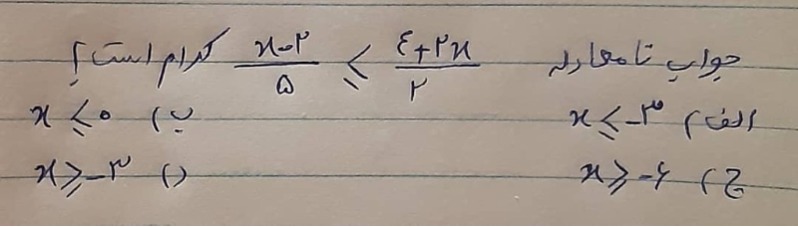 جواب نامعادله (x-2)/5 ⩽ (4+2x)/2 کدام است؟
الف) x ⩽ -3 ب) x ⩽ 0
ج) x ⩾ -6 د) x ⩾ -3